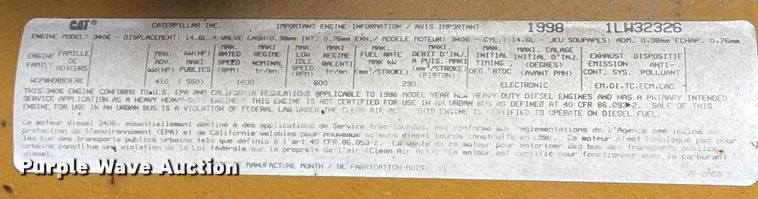 CAT CATERPILLAR INC. IMPORTANT ENGINE INFORMATION / AVIS IMPORTANT 1998 1LW32326
ENGINE MODEL: 3406 - DISPLACEMENT: 14.6L - VALVE LASH: 0.38mm INT. 0.76mm EXH./ MODELE MOTEUR: 3406 - CYL.: 14.6L - JEU SOUPAPES: ADM. 0.38mm ECHAP. 0.76mm
ENGINE FAMILY FAMILLE DE MOTEURS MAX. ADV. kW(HP) MAXI. kW(HP) PUBLIES MAX. RATED SPEED (RPM) MAXI. REGIME NOMINAL tr/mn LOW IDLE SPEED (RPM) REGIME RALENTI tr/mn MAX. FUEL RATE (mm³/STROKE) DEBIT D'INJ. A PUIS. MAXI (mm³/STROKE) (PISTON) MAX. INITIAL TIMING DEG. BTDC MAXI. CALAGE INITIAL D'INJ. (DEGRES) (AVANT PMH) EXHAUST EMISSION CONT. SYS. DISPOSITIF ANTI POLLUANT
WCPXH0893ERK 410 (550) 1800 600 290 ELECTRONIC EM,DI,TC,ECM,CAC
THIS 3406 ENGINE CONFORMS TO U.S. EPA AND CALIFORNIA REGULATIONS APPLICABLE TO 1998 MODEL YEAR NEW HEAVY DUTY DIESEL ENGINES AND HAS A PRIMARY INTENDED
SERVICE APPLICATION AS A HEAVY HEAVY-DUTY ENGINE. THIS ENGINE IS NOT CERTIFIED FOR USE IN AN URBAN BUS AS DEFINED AT 40 CFR 86.093-2. SALE OF THIS
ENGINE FOR USE IN AN URBAN BUS IS A VIOLATION OF FEDERAL LAW UNDER THE CLEAN AIR ACT. THIS ENGINE IS CERTIFIED TO OPERATE ON DIESEL FUEL.
Ce moteur diesel 3406, essentiellement destiné à des applications de Service très lourdes, est conforme aux réglementations de l'Agence américaine de
protection de l'environnement (EPA) et de Californie valables pour nouveaux moteurs diesel lourds construits 1998. Ce moteur n'est homologué pas pour
les bus des transports publics urbains tels que définis à l'art 40 CFR 86.093-2. La vente de ce moteur pour motoriser des bus des transports publics
urbains constitue une violation de la Loi fédérale sur la propreté de l'air (Clean Air Act). Ce moteur est certifié pour fonctionner avec le carburant
diesel.
MANUFACTURE MONTH / DE FABRICATION-MOIS: 11
Purple Wave Auction